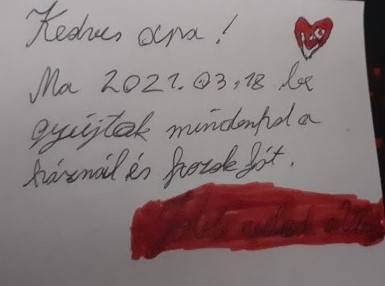 Kedves apa!
Ma 2021.03.18 be
gyújtok mindenhol a
háznál és hozok fát.